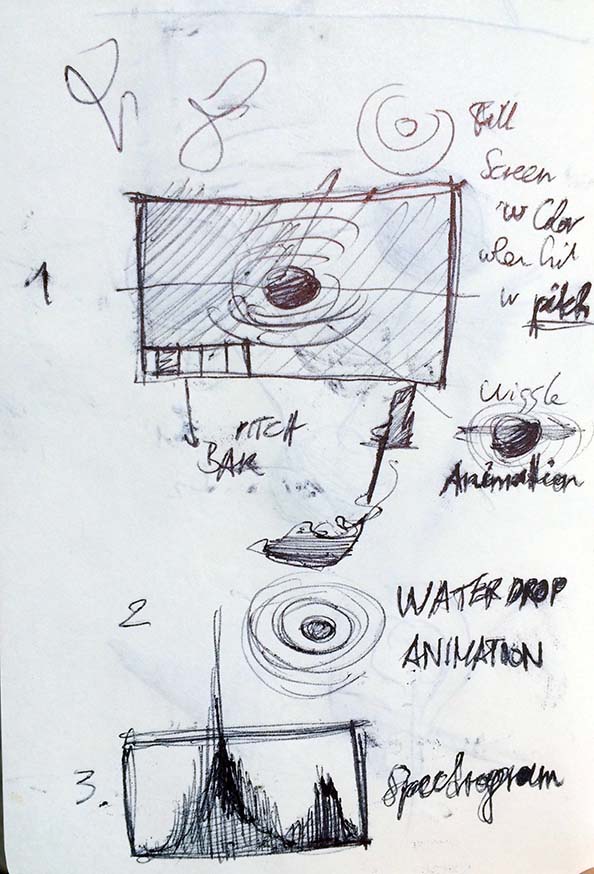 Fill
Screen
w Color
when hit
w pitch
1
PITCH
BAR
Wiggle
Animation
2
WATER DROP
ANIMATION
3.
Spectrogram